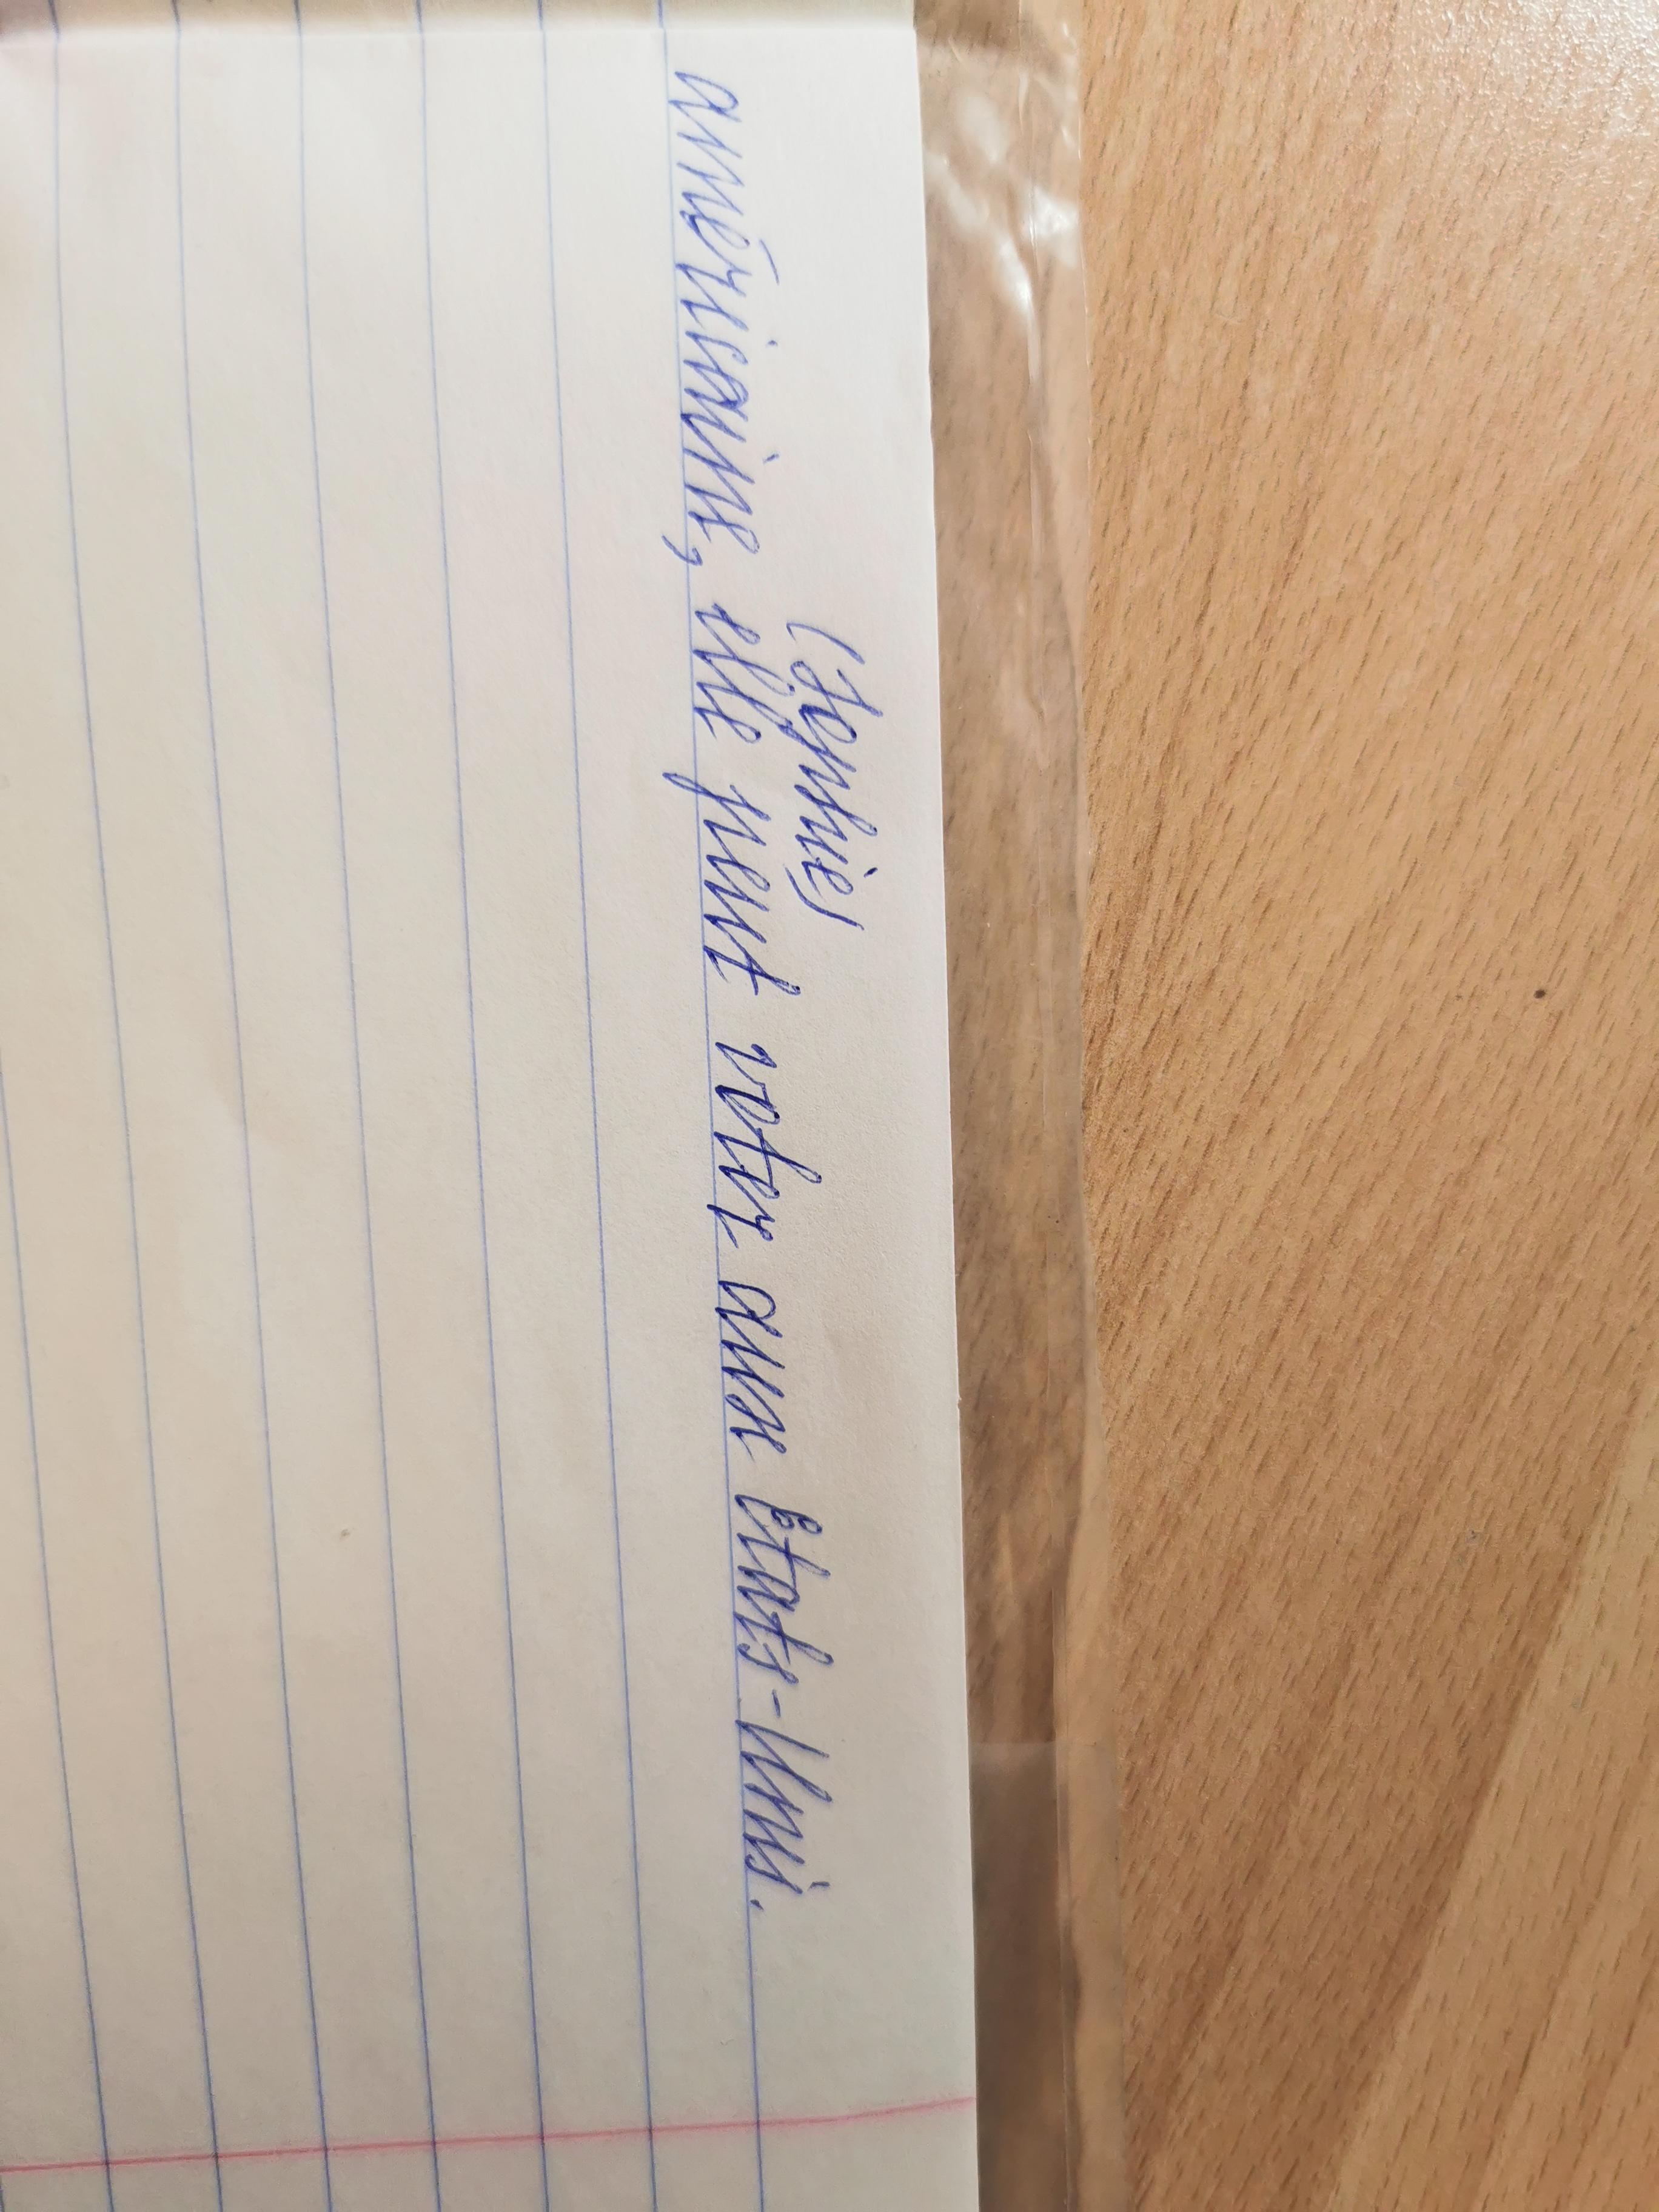 (Sophie)
américaine, elle peut voter aux États-Unis.